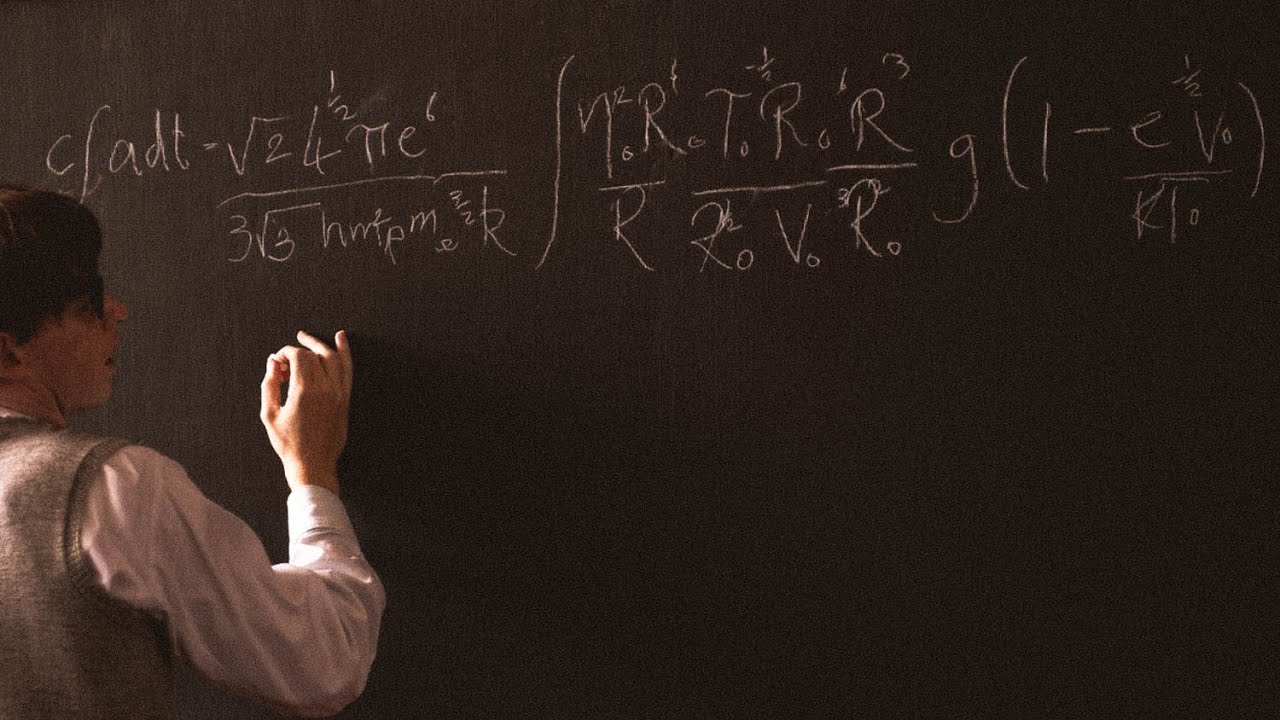 c∫adt = √2 4^½ πe⁶ / 3√3 hm²ₚmₑ^{3/2}k ∫ η₀²R⁶/R · T₀^{-½}R₀⁶/R₀² V₀ · R³/³R₀² g(1 − e^½ V₀/KT₀)